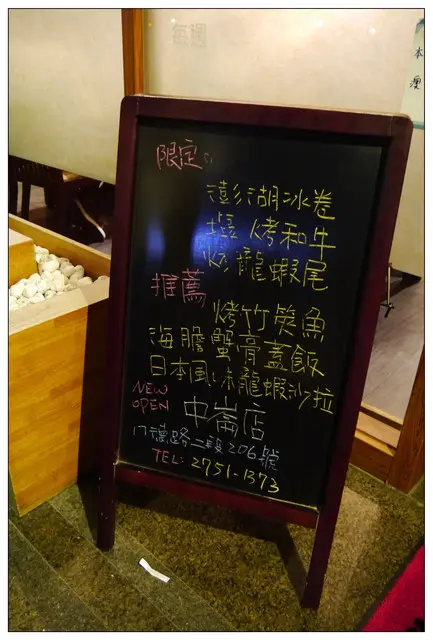 每週
本
澳
限定:
澎湖冰卷
塩烤和牛
炒龍蝦尾
推薦
烤竹筴魚
海膽蟹膏蓋飯
日本風味龍蝦沙拉
NEW
OPEN
中崙店
八德路二段206號
TEL: 2751-1373